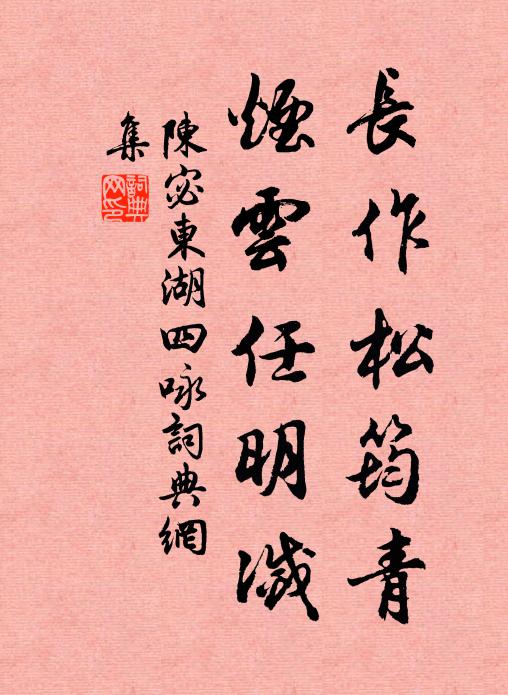 長作松筠青
煙雲任明滅
陳宓東湖四咏詞典網
集
詞典
网印